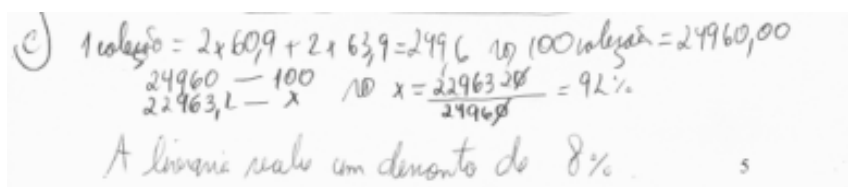 c) 1 coleção = 2x60,9 + 2x63,9 = 249,6 → 100 coleções = 24960,00
24960 — 100
22963,2 — x → x = 2296320 / 24960 = 92%
A livraria recebe um desconto de 8%.
5